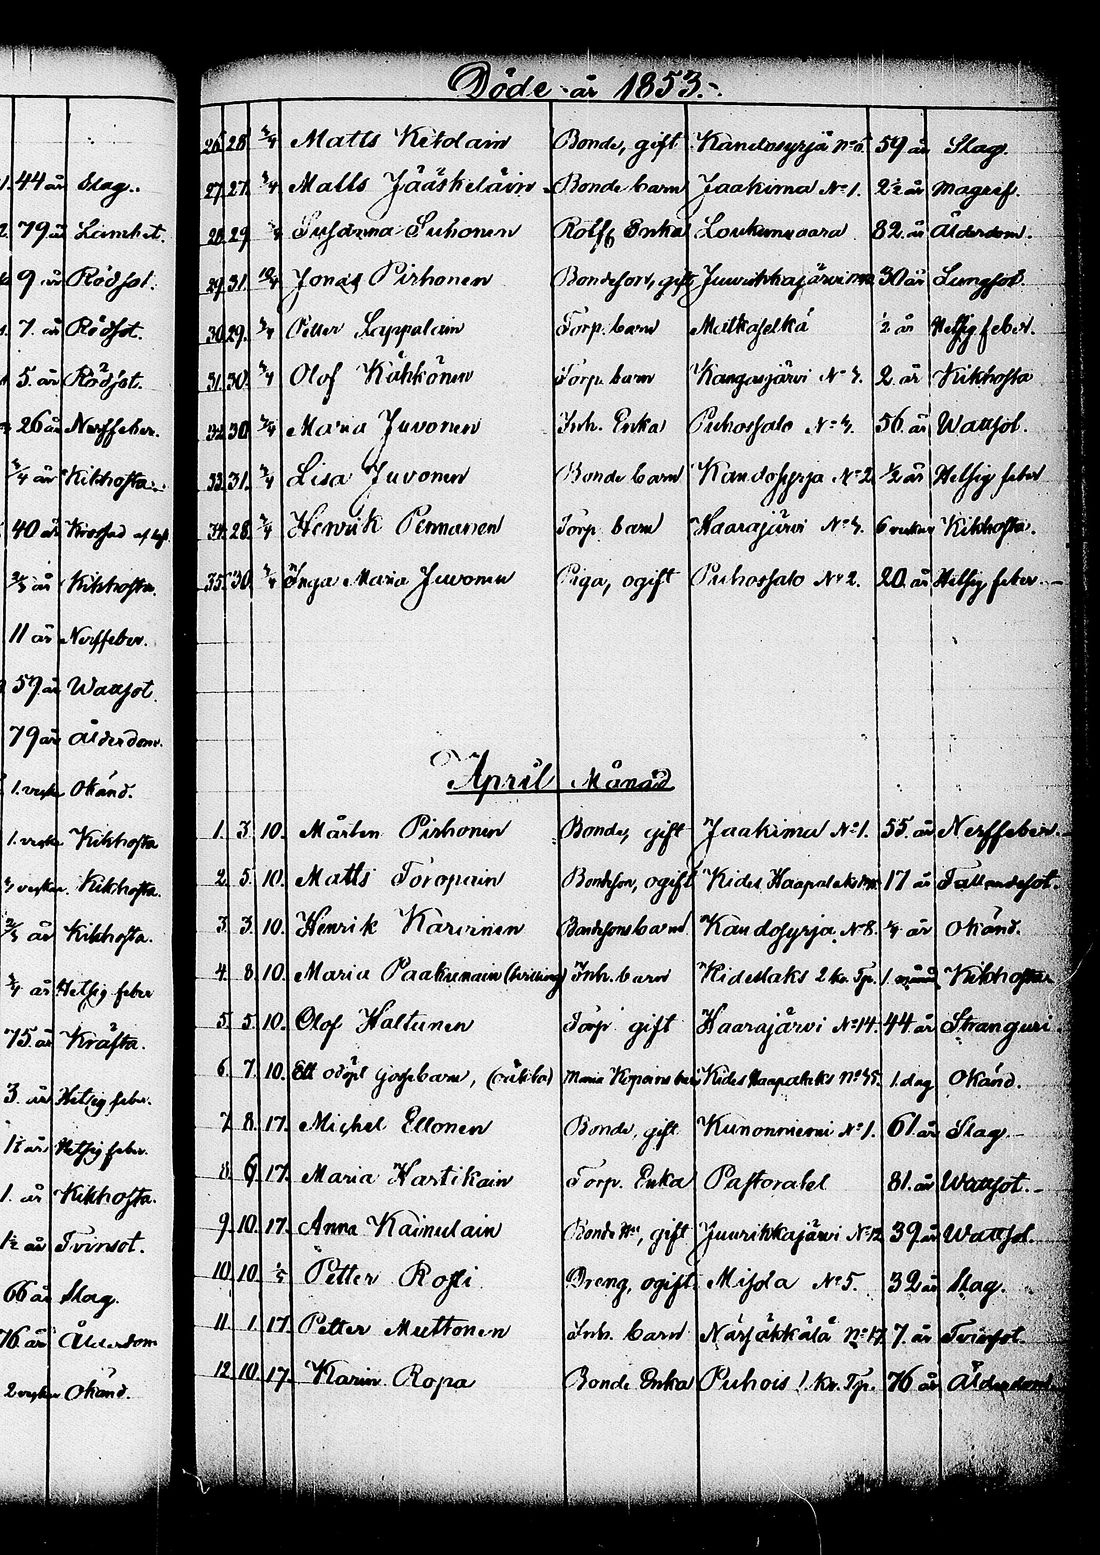 44 år Slag.
79 år Lamhet.
9 år Rödsot.
7. år Rödsot.
5. år Rödsot.
26 år Nerffeber.
3/4 år Kikhosta
40 år
2/3 år Kikhosta
11 år Nerffeber.
57 år Wattsot.
79 år Ålderdom.
1. veka Okänd.
1. veka Kikhosta
Kikhosta.
2/3 år Kikhosta.
3/4 år Hetsig feber
75. år Kräfta.
3. år Hetsig feber.
1½ år Hetsig feber.
1. år Kikhosta.
1½ år Tvinsot.
66 år Slag.
76 år Ålderdom
2 vekor Okänd.
Döde år 1853.
26 28 3/4 Matts Kitolain Bonde, gift Kandosyrjä No 6. 59 år Slag.
27. 27. 3/4 Matts Jääskeläin Bonde barn Jaakima No 1. 2½ år Magref.
28 29 Susanna Suhonen Rotfg Enka Loukunvaara 82. år Ålderdom.
29 31. 10/4 Jonas Pirhonen Bondeson, gift Juurikkajärvi 30 år Lungsot.
30 29. 3/4 Petter Lappalain Torp. barn Matkaselkä ½ år Hetsig feber.
31. 30. 3/4 Olof Kähkönen Torp. barn Kangasjärvi No 3. 2. år Kikhosta
32 30 3/4 Maria Juvonen Inh. Enka Puhossalo No 3. 56. år Wattsot.
33. 31. 3/4 Lisa Juvonen Bonde barn Kandosyrja No 2 ½ år Hetsig feber
34. 28. 3/4 Henrik Pennanen Torp. barn Haarajärvi No 3. 6 vekor Kikhosta.
35. 30. 3/4 Inga Maria Juvonen Piga, ogift Puhossalo No 2. 20. år Hetsig feber
April Månad
1. 3. 10. Mårten Pirhonen Bonde, gift Jaakima No 1. 55. år Nerffeber.
2. 5. 10. Matts Toropain Bondeson, ogift Kides Haapalaks 17 år Fallandesot.
3. 3. 10. Henrik Karvinen Bondesons barn Kandosyrja No 8. ¼ år Okänd.
4. 8. 10. Maria Paakunain (tvilling) Inh. barn Kideslaks 2 kr. Tp. 1. månad Kikhosta
5. 5. 10. Olof Haltunen Torp. gift Haarajärvi No 14. 44 år Stranguri.
6. 7. 10. Ett odöpt gossebarn, (oäkta) Maria Kopains barn Kides Haapalaks No 35. 1. dag Okänd.
7. 8. 17. Michel Ellonen Bonde, gift Kunonniemi No 1. 61. år Slag
8. 6. 17. Maria Hartikain Torp. Enka Pastoratet 81. år Wattsot.
9. 10. 17. Anna Kainulain Bonde Hu, gift Juurikkajärvi No 12 39 år Wattsot.
10. 10. 1/5 Petter Rossi Dreng, ogift Misola No 5. 32 år Slag.
11. 1. 17. Petter Muttonen Inh. barn Närsäkkälä No 17 7. år Tvinsot.
12. 10. 17. Karin Ropa Bonde Enka Puhois 1. Kr. Tp. 76 år Ålderdom.